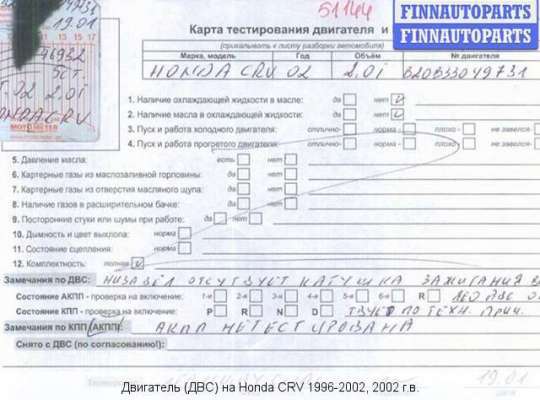 51144
FINNAUTOPARTS
FINNAUTOPARTS
19.01
15 16 17
46932
2.0i
MOTOMETER
Карта тестирования двигателя и
(прикалывать к листу разборки автомобиля)
Марка, модель Год Объём № двигателя
HONDA CRV 02 2.0i
1. Наличие охлаждающей жидкости в масле: да нет
2. Наличие масла в охлаждающей жидкости: да нет
3. Пуск и работа холодного двигателя: отлично- норма - плохо - не завелся-
4. Пуск и работа прогретого двигателя: отлично- норма - плохо - не завелся-
5. Давление масла: есть - нет -
6. Картерные газы из маслозаливной горловины: да нет
7. Картерные газы из отверстия масляного щупа: да нет
8. Наличие газов в расширительном бачке: да нет
9. Посторонние стуки или шумы при работе: да нет
10. Дымность и цвет выхлопа: норма
11. Состояние сцепления: норма
12. Комплектность: полная
Замечания по ДВС: ОТСУТВУЕТ КАТУШКА ЗАЖИГАНИЯ
Состояние АКПП - проверка на включение: 1-я 2-я 3-я 4-я 5-я 6-я R
Состояние КПП - проверка на включение: P R N D ПО ТЕХН. ПРИЧ.
Замечания по КПП (АКПП): АКПП НЕ ТЕСТИРОВАНА
Снято с ДВС (по согласованию!):
19.01
Двигатель (ДВС) на Honda CRV 1996-2002, 2002 г.в.